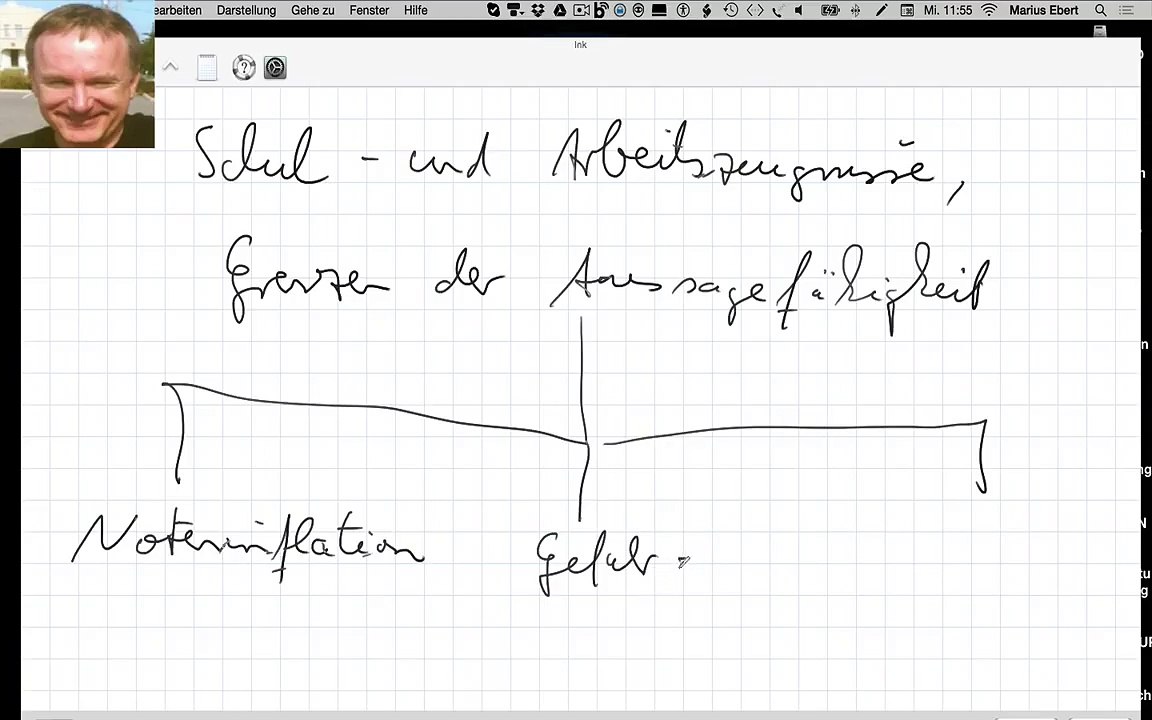 earbeiten Darstellung Gehe zu Fenster Hilfe Mi. 11:55 Marius Ebert
Ink
Schul - und Arbeitszeugnisse,
Grenzen der Aussagefähigkeit
Noteninflation Gefahr
n
n
ng
N
ku
g
UP
ch